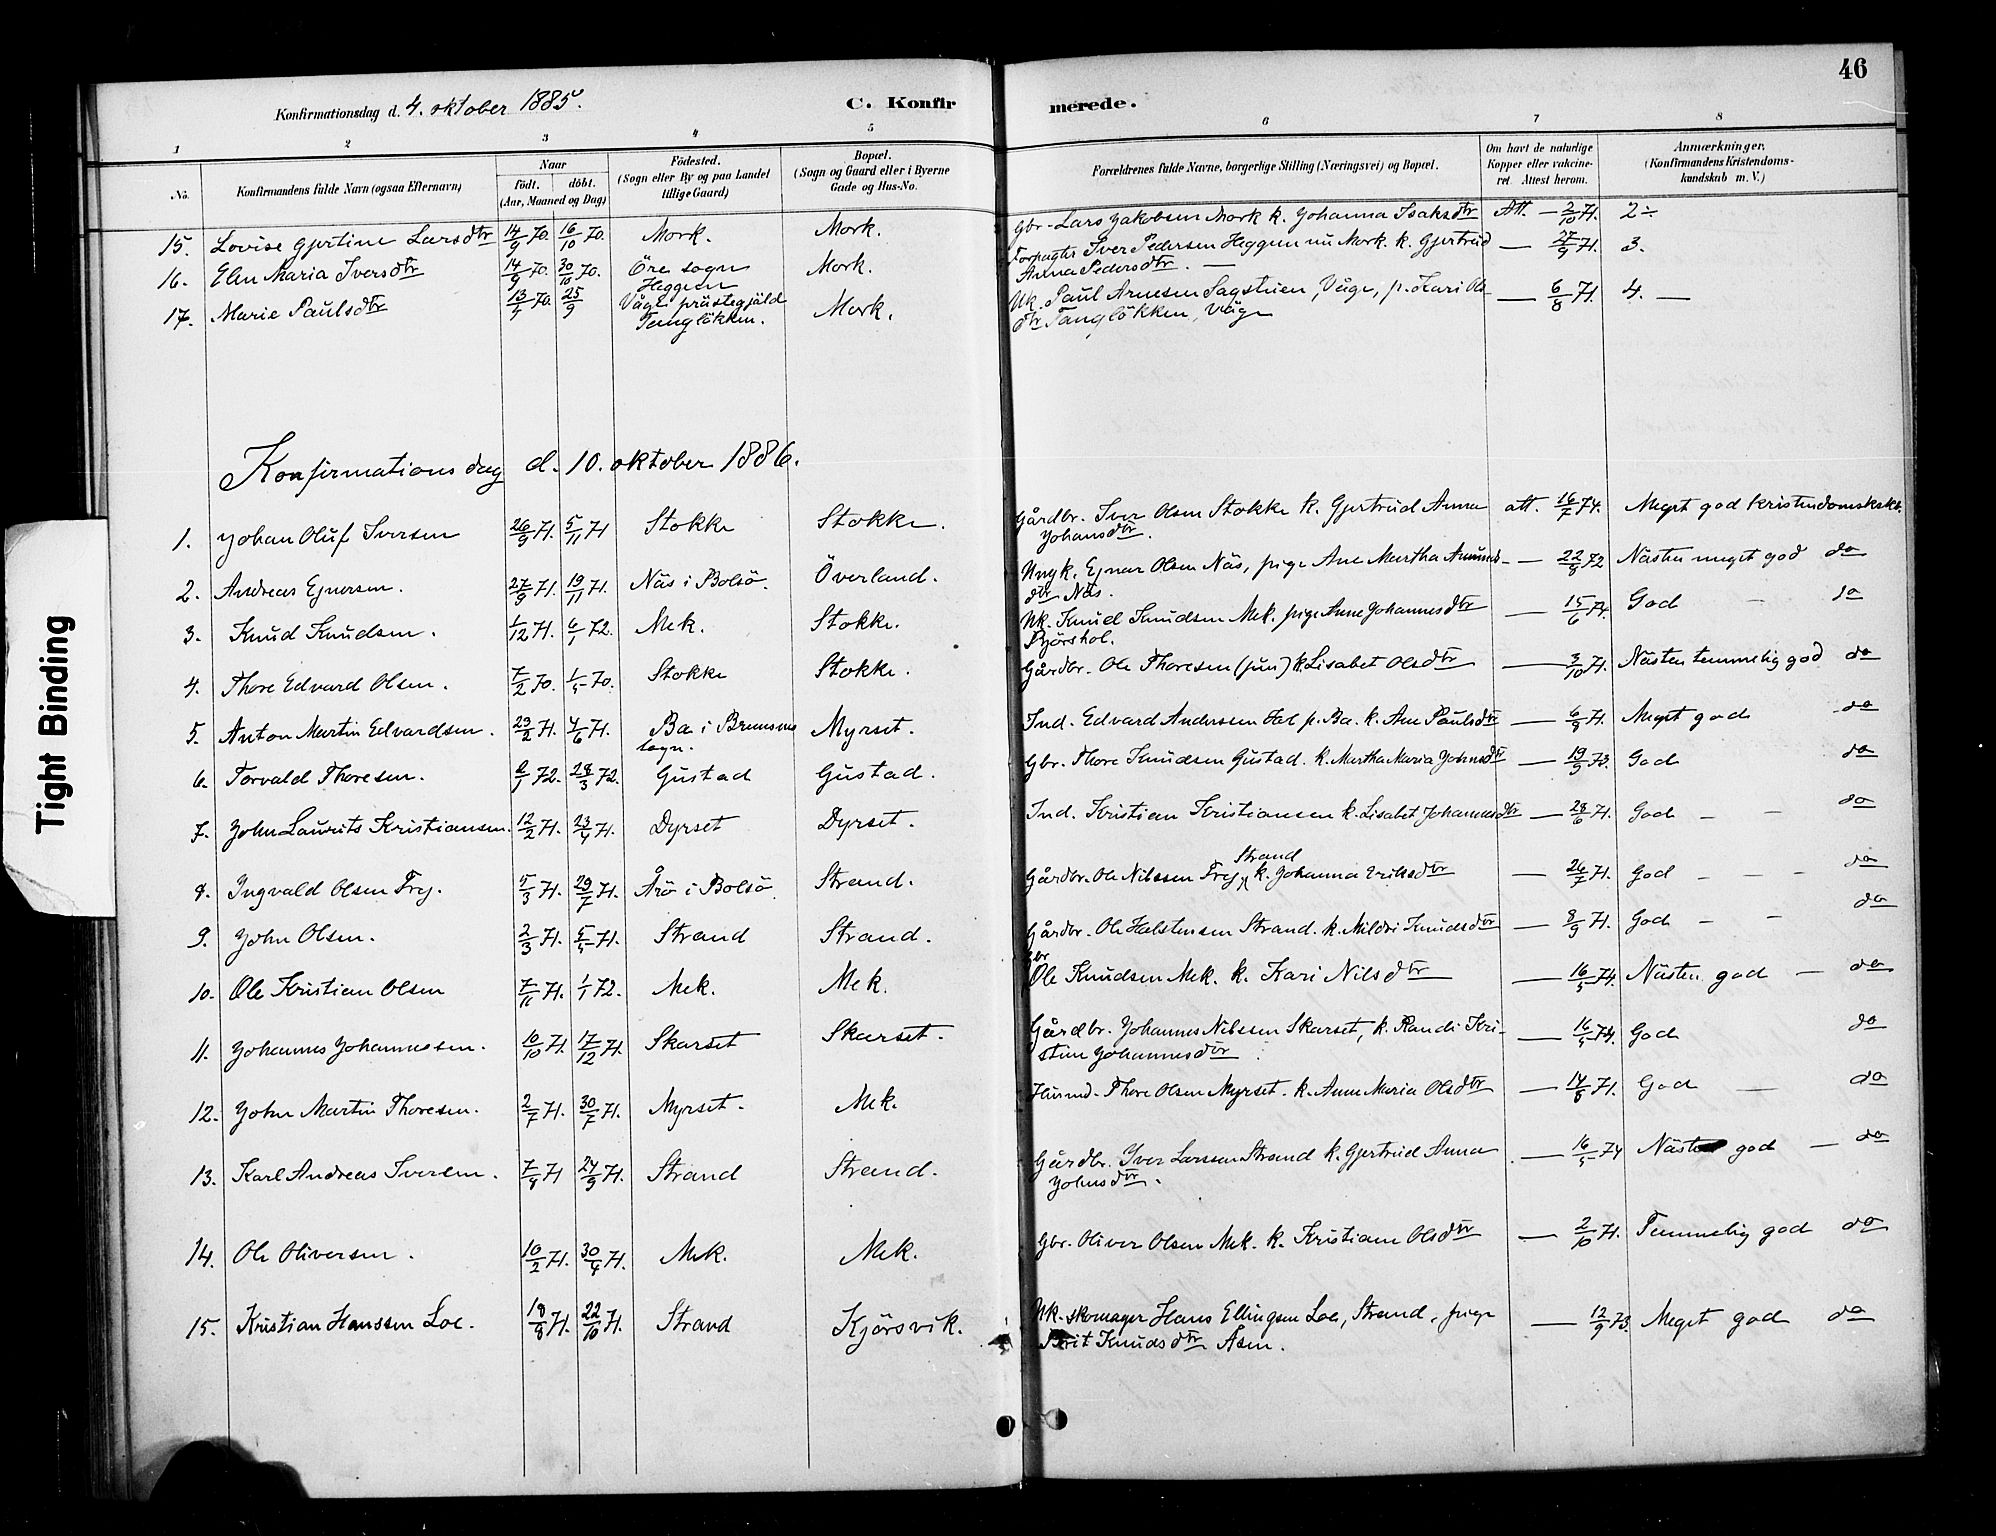 46
Konfirmationsdag d. 4. oktober 1885.
C. Konfirmerede.
1 2 3 4 5 6 7 8
No.
Konfirmandens fulde Navn (ogsaa Efternavn)
Naar
født. døbt.
(Aar, Maaned og Dag)
Fødested.
(Sogn eller By og paa Landet
tillige Gaard)
Bopæl.
(Sogn og Gaard eller i Byerne
Gade og Hus-No.
Forældrenes fulde Navne, borgerlige Stilling (Næringsvei) og Bopæl.
Om havt de naturlige
Kopper eller vaccine-
ret. Attest herom.
Anmærkninger.
(Konfirmandens Kristendoms-
kundskab m. V.)
15. Lovise Gjertine Larsdtr 14/9 70. 16/10 70. Mork. Mork. Gbr. Lars Jakobsen Mork k. Johanna Isaksdtr Att. — 2/10 71. 2÷
16. Elen Maria Iversdtr 14/9 70. 30/10 70. Öre sogn Mork. Forpagter Iver Pedersen Heggem nu Mork. k. Gjertrud — 27/9 71. 3.
Heggem Anna Pedersdtr. —
17. Marie Paulsdtr 13/4 70. 25/9 Våge prästegjäld Mork. Uk. Paul Arnesen Sagstuen, Våge, p. Kari Ols- — 6/8 71. 4. —
Tangløkken. dtr Tangløkken, Våge
Konfirmationsdag d. 10. oktober 1886.
1. Johan Oluf Iversen 26/9 71. 5/11 71 Stokke Stokke. Gårdbr. Iver Olsen Stokke k. Gjertrud Anna att. 16/7 74. Meget god kristendomskskb.
Johansdtr.
2. Andreas Ejnersen. 27/9 71. 19/11 71. Näs i Bolsö. Överland. Ungk. Ejnar Olsen Näs, pige Ane Martha Amunds- — 22/8 72 Nästen meget god do
dtr Näs.
3. Knud Knudsen. 1/12 71. 6/1 72. Mek. Stokke. Uk. Knud Knudsen Mek. pige Anne Johannesdtr — 15/6 74. God — do
Bjørshol.
4. Thore Edvard Olsen. 7/2 70. 1/5 70. Stokke Stokke. Gårdbr. Ole Thoresen (jun) k. Lisabet Olsdtr — 3/10 71. Nästen temmelig god do
5. Anton Martin Edvardsen. 23/2 71. 4/6 71. Bø i Bremsnes Myrset. Ind. Edvard Andersen Hol p. Bø. k. Ane Paulsdtr — 6/9 71. Meget god do
sogn.
6. Torvald Thoresen. 2/1 72. 28/3 72. Gustad Gustad. Gbr. Thore Knudsen Gustad. k. Martha Maria Johnsdtr — 19/9 73. God do
7. John Laurits Kristiansen. 12/2 71. 23/4 71. Dyrset Dyrset. Ind. Kristian Kristiansen k. Lisabet Johannesdtr — 28/6 71. God — — do
8. Ingvald Olsen Frej. 5/3 71. 29/7 71. Årö i Bolsö. Strand. Gårdbr. Ole Nilssen Frej, Strand k. Johanna Eriksdtr — 26/7 71. God — — — do
9. John Olsen. 2/3 71. 5/5 71. Strand Strand. Gårdbr. Ole Halstensen Strand. k. Mildri Knudsdtr — 8/9 71. God — — do
10. Ole Kristian Olsen 7/11 71. 1/1 72. Mek. Mek. Gbr Ole Knudsen Mek. k. Kari Nilsdtr — 16/5 74. Nästen god — do
11. Johannes Johannessen. 10/10 71. 17/12 71. Skarset Skarset. Gårdbr. Johannes Nilssen Skarset, k. Randi Kri- — 16/5 74. God do
stine Johannesdtr.
12. John Martin Thoresen. 2/7 71. 30/7 71. Myrset. Mek. Husmd. Thore Olsen Myrset. k. Anne Maria Olsdtr — 14/8 71. God — do
13. Karl Andreas Iversen. 7/8 71 24/9 71. Strand Strand. Gårdbr. Iver Larssen Strand k. Gjertrud Anna — 16/5 74 Nästen god — do
Johnsdtr.
14. Ole Oliversen. 10/2 71. 30/4 71. Mek. Mek. Gbr. Oliver Olsen Mek. k. Kristiane Olsdtr — 2/10 71. Temmelig god do
15. Kristian Hanssen Loe. 18/8 71. 22/10 71. Strand Kjørsvik. Uk. skomager Hans Ellingsen Loe, Strand, pige — 12/9 73. Meget god do
Brit Knudsdtr Åsen.
Tight Binding